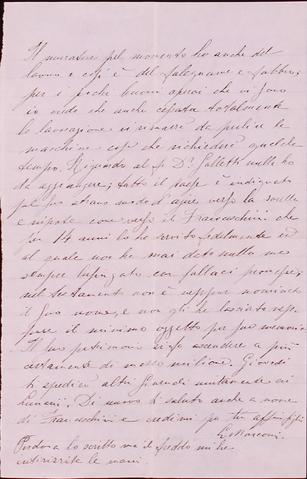 Il muratore pel momento ha anche del
lavoro e così è del falegname e fabbro,
per i pochi buoni operai che vi sono
io credo che anche cessata totalmente
la lavorazione vi rimarrà da pulire le
macchine cosa che richiederà qualche
tempo. Riguardo al fu Dr. Galletti nulla ho
da aggiungere; tutto il paese è indignato
pel suo strano modo d'agire verso la sorella
e nipote come verso il Franceschini che
per 14 anni lo ha servito fedelmente ed
al quale non ha mai dato nulla ma
sempre lusingato con fallaci promesse,
nel testamento non è neppur nominato
il suo nome, e non gli ha lasciato nep-
pure il minimo oggetto per sua memoria.
Il suo patrimonio vuolsi ascendere a più
certamente di mezzo milione. Giovedì
ti spedirò altri
Di nuovo ti saluto anche a nome
di Franceschini e credimi pel tuo
G. Marconi
Perdona lo scritto ma il freddo mi ha
intirizzite le mani.